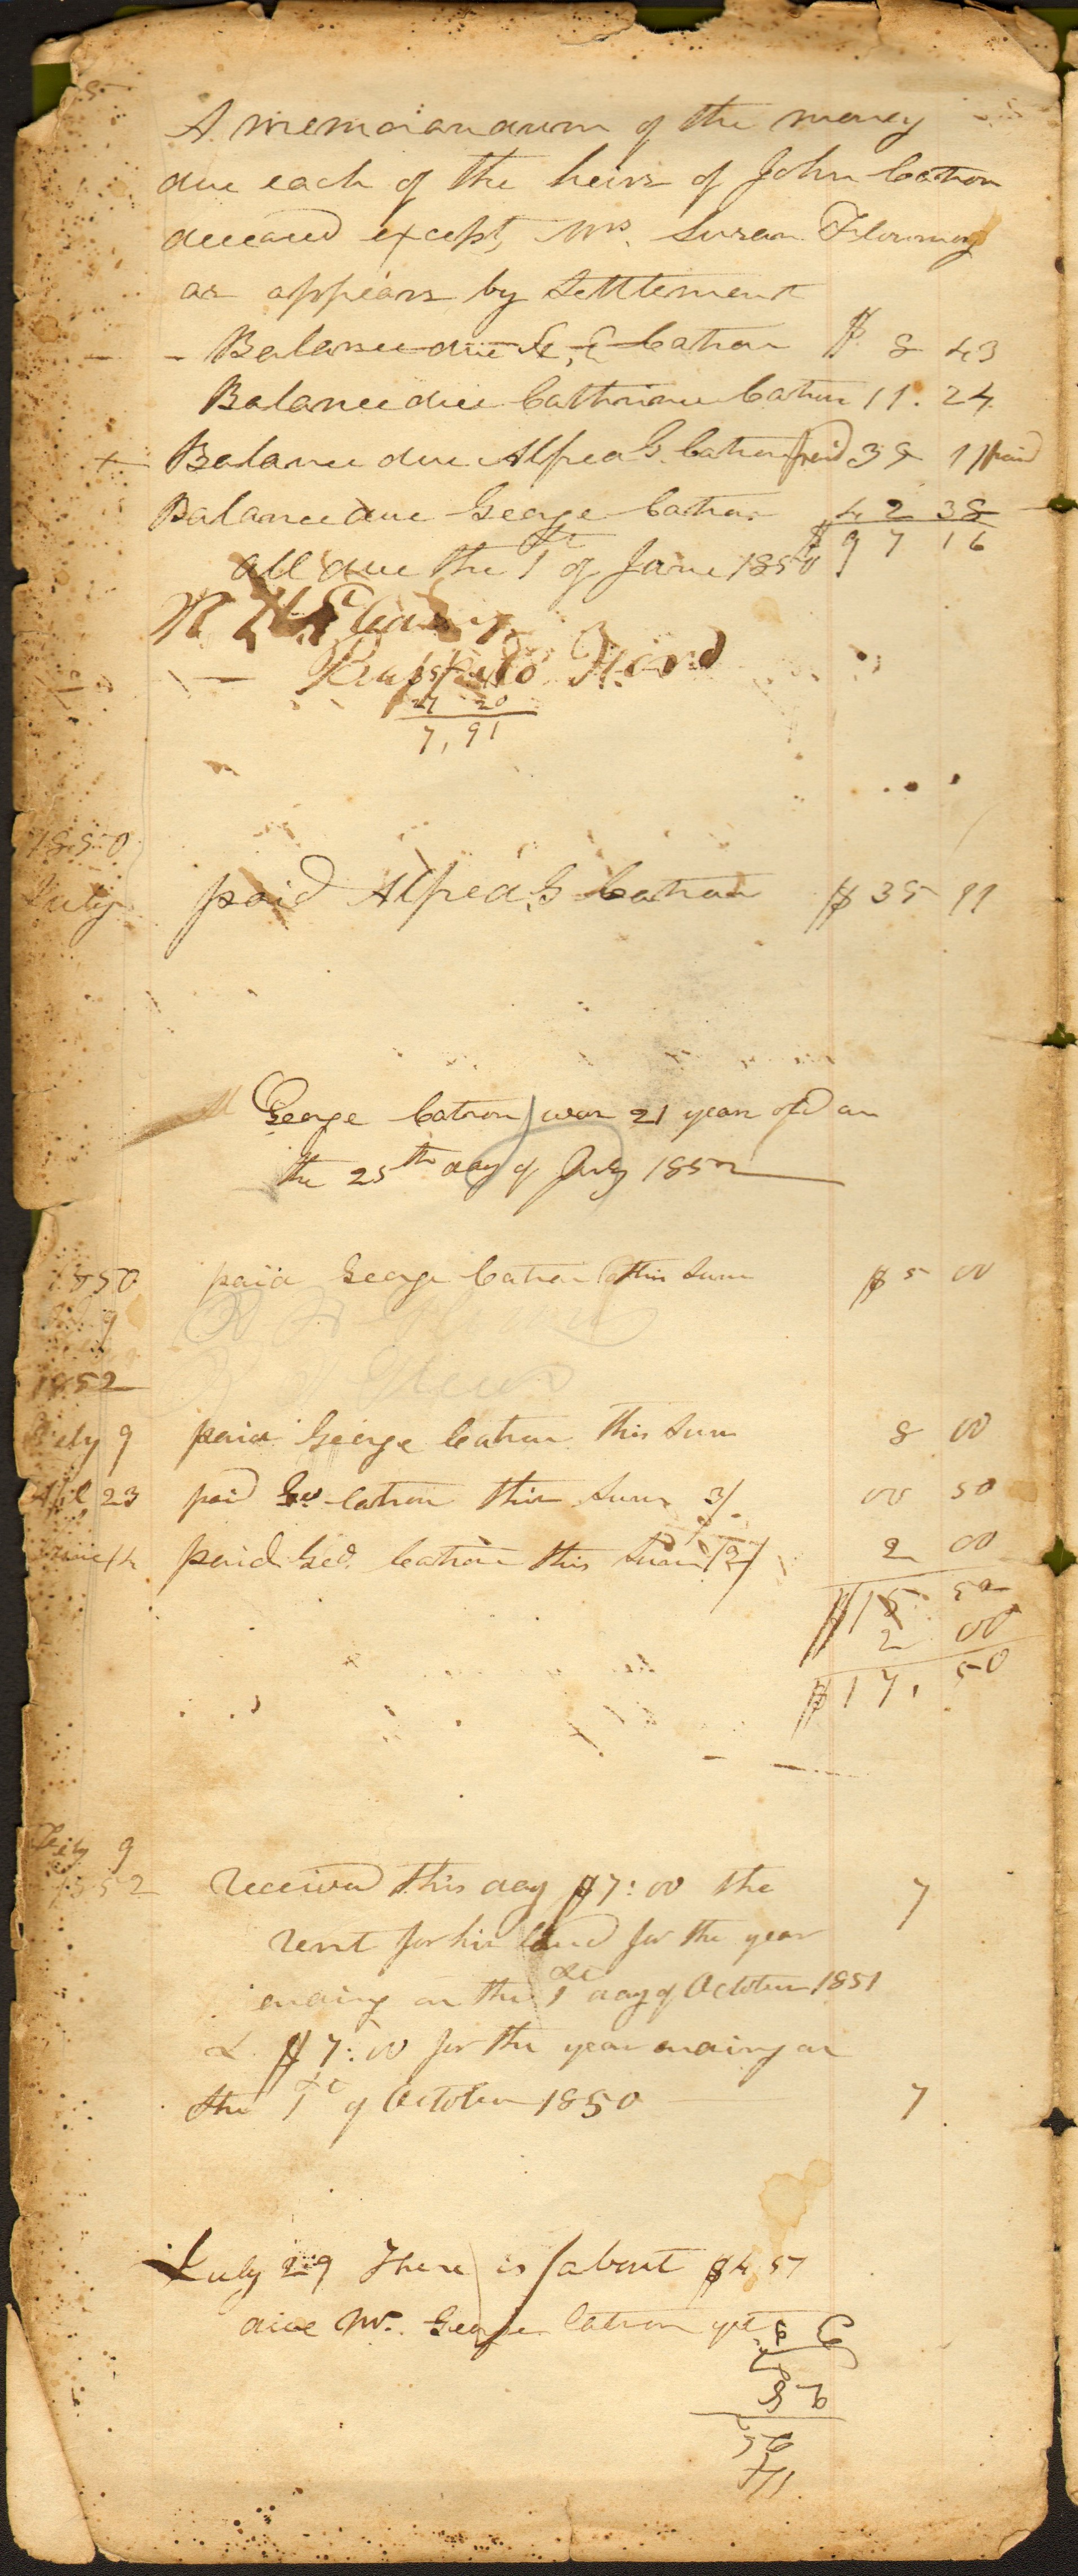 A memorandum of the money
due each of the heirs of John Catron
deceased except, Mrs. Susan Flournoy
as appears by Settlement
Balance due C. Catron $ 8 43
Balance due Cathrine Catron 11. 24
+ Balance due Alfred G. Catron paid 35 11 paid
Balance due George Catron 42 38
$97 16
All due the 1st of June 1850
7,91
1850
July paid Alfred G Catron $35 11
George Catron was 21 years old on
the 25th day of July 1852
1850 paid George Catron this sum $5 00
1852
July 9 paid George Catron this sum 8 00
Apl 23 paid Geo Catron this sum 3/. 00 50
June 14 paid Geo. Catron this sum 12/ 2 00
$15 50
2 00
$17, 50
July 9
1852 received this day $7:00 the 7
rent for his land for the year
ending on the 1st day of October 1851
& $7:00 for the year ending on
the 1st of October 1850 7
July 29 There is about $4 57
due Mr. George Catron yet